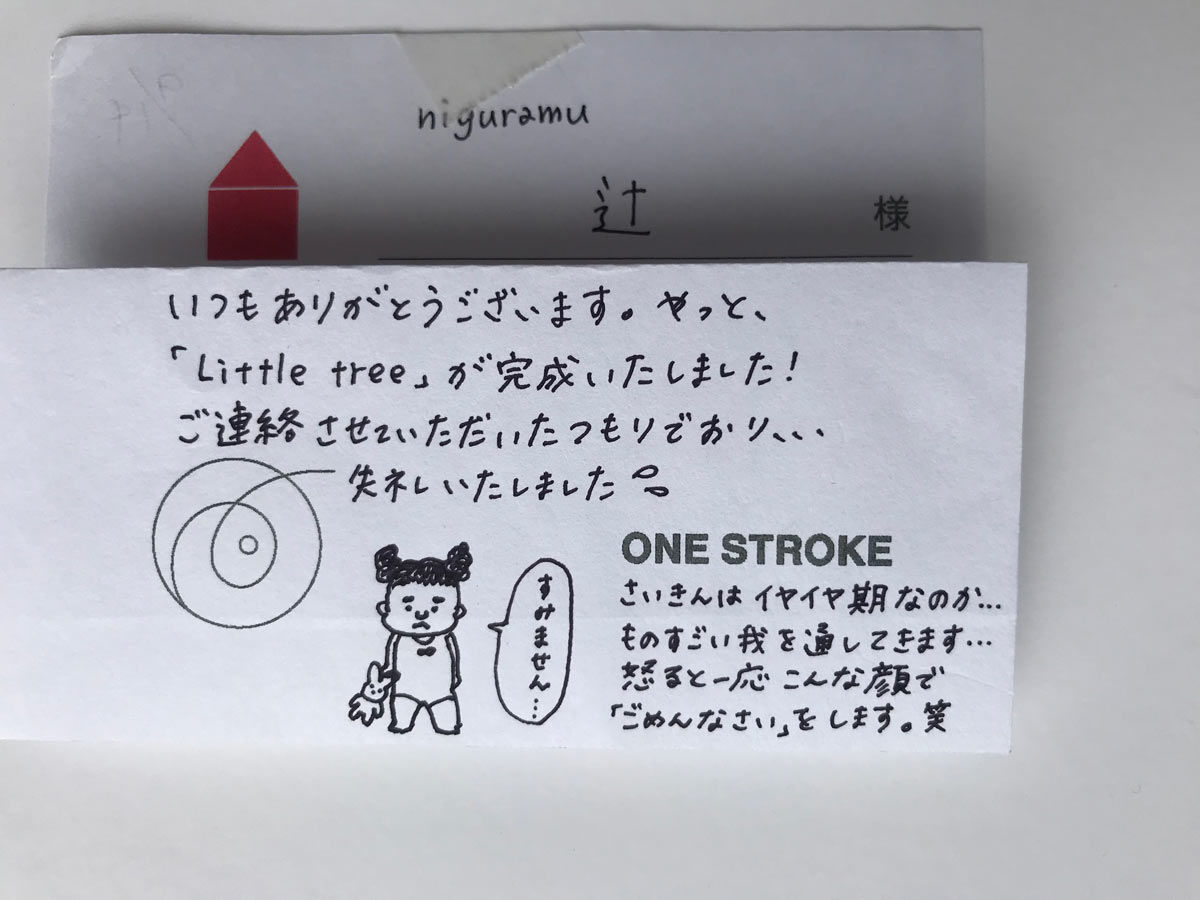 niguramu
辻 様
いつもありがとうございます。やっと、
「Little tree」が完成いたしました!
ご連絡させていただいたつもりでおり、、、
失礼いたしました
すみません…
ONE STROKE
さいきんは イヤイヤ期なのか…
ものすごい我を通してきます…
怒ると一応 こんな顔で
「ごめんなさい」をします。笑